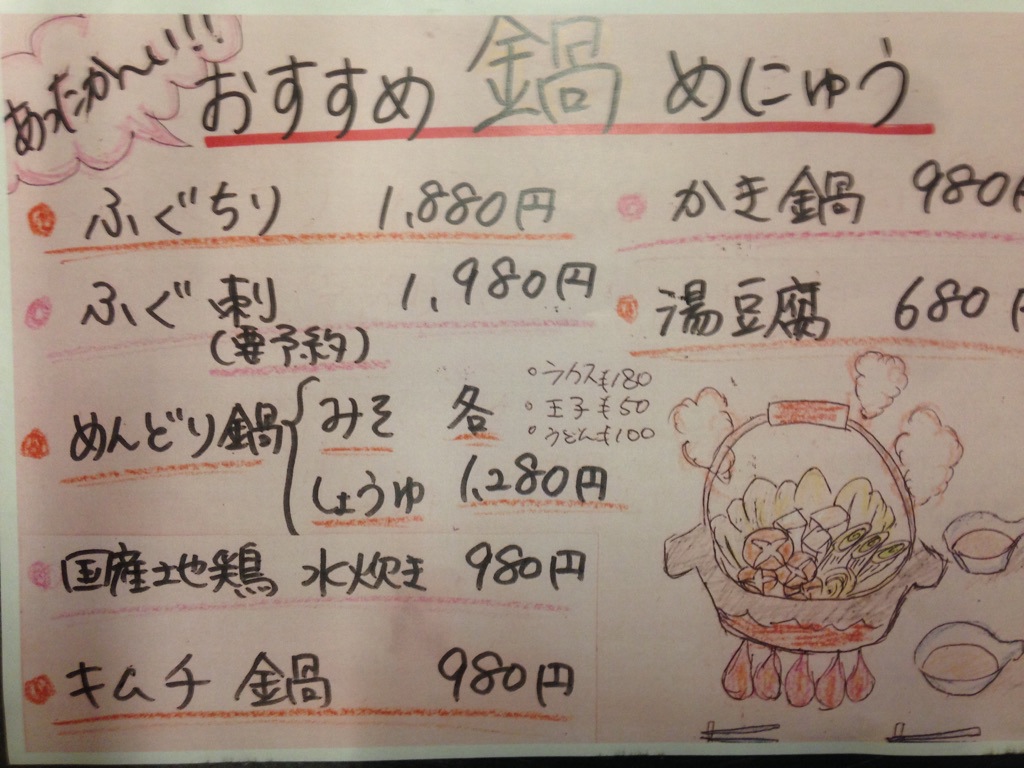 あったかーい!!
おすすめ 鍋 めにゅう
ふぐちり 1,880円
ふぐ刺 1,980円
(要予約)
めんどり鍋 みそ 各
しょうゆ 1,280円
国産地鶏 水炊き 980円
キムチ 鍋 980円
かき鍋 980円
湯豆腐 680円
ライス¥180
玉子¥50
うどん¥100